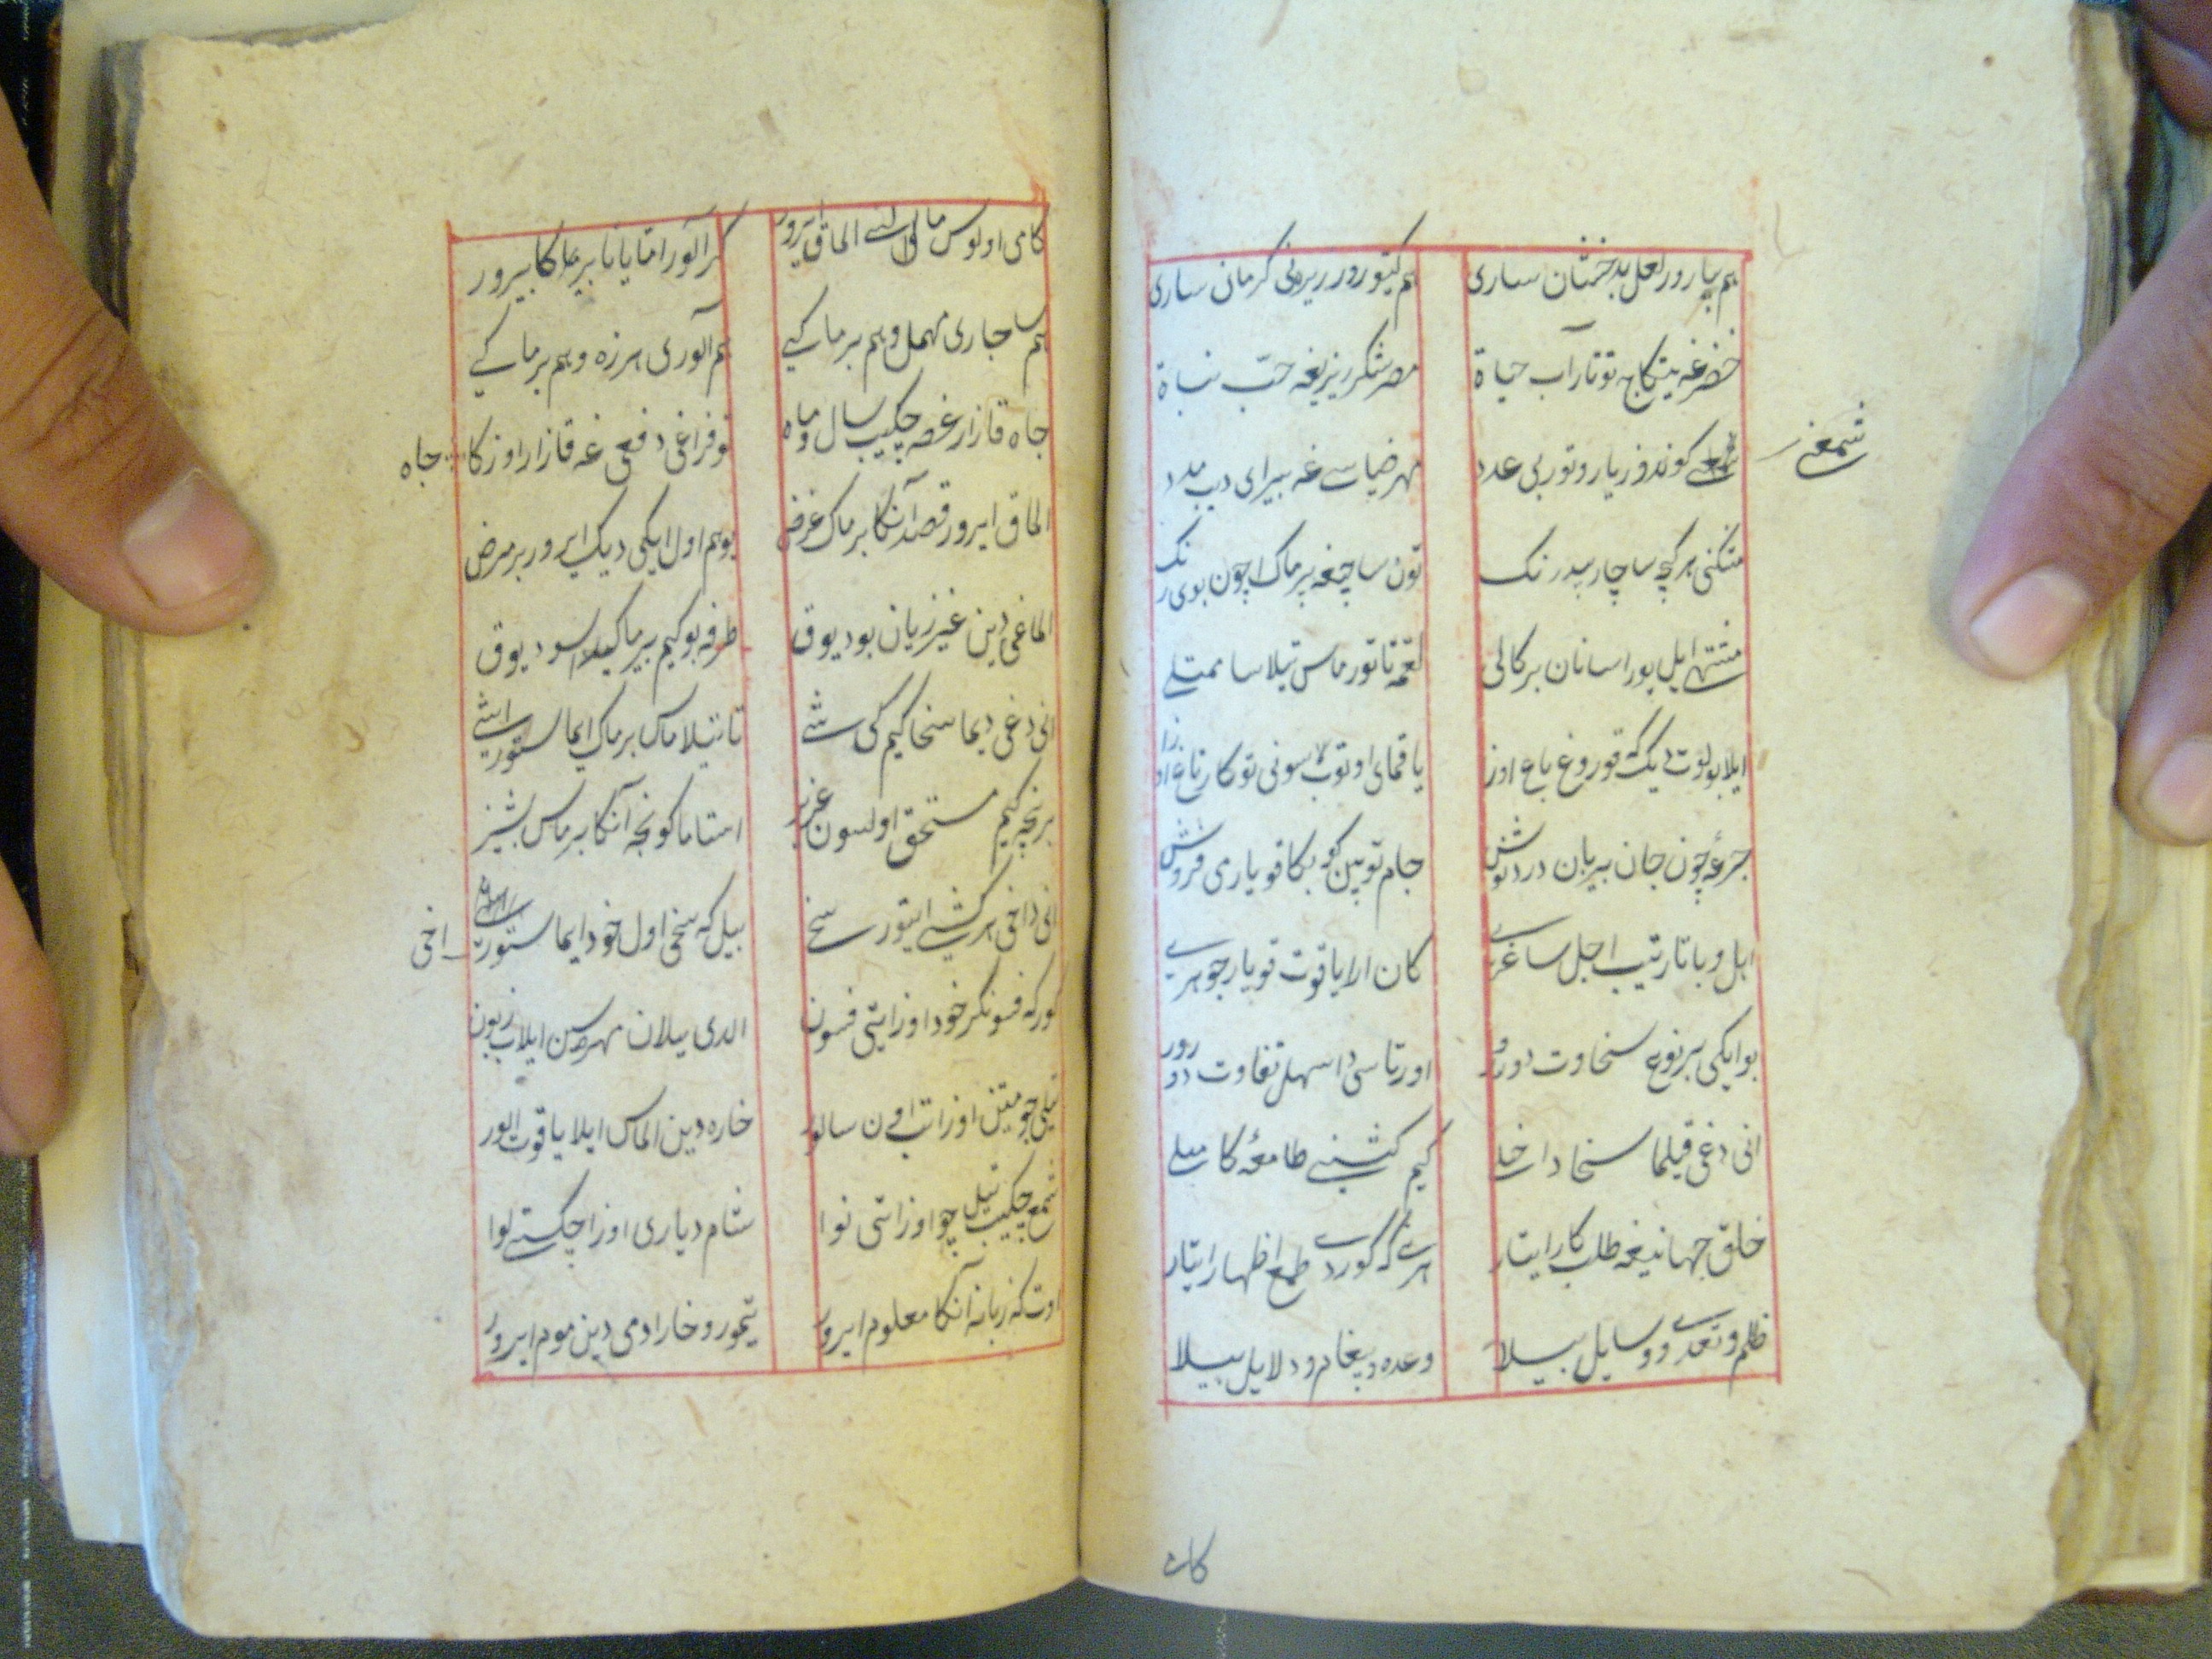 هم پیارور لعل بدخشان ساری هم کیتورور زیره نی کرمان ساری
خضرغه یتکاج توتار آب حیاة مصر شکرریزیغه حبّ نباة
شمعنی کوندوز یاروتور بی عدد مهر ضیاسی غه بیرای دیب مدد
شمعنی
متکنی هر کیچه ساچار بیدرنک تون ساچیغه بیرماک اچون بوی رنک
مشتهی ایل بورا سانان بر کالی لقمه تاتورماس تیلاسا ممتلی
ایلا بولوت دیک که قوروغ باغ اوزا یاقمای اوتوب سونی توکار تاغ اوزا
جرعه چون جان بیریبان دردنوش جام توبین کوبکا قویاری فروش
اهل وبا تارتیب اجل ساغری کان ارا یاقوت قویار جوهری
بو ایکی بر نوع سخاوت دورور اورتاسی دا سهل تفاوت دورور
انی دغی قیلما سخا داخلی کیم کشی نی طامعه کا میلی
خلق جهانیغه طلب کار ایتار هر نی که کوردی طمع اظهار ایتار
ظلم و تعدی و وسایل بیلا وعده و پیغام و دلایل بیلا
کامی
کامی اولوس مالی نی الماق ایرور کر آلور اما یانا بیرماکا بیرور
هم ساجاری مهمل و هم بیرماکی هم آلوری هرزه و هم بیرماکی
جاه قازار غصه چکیب سال و ماه توفراغی دفعی غه قازار اوزکا جاه
جاه
الماق ایرور قصد آنکا بیرماک غرض بو هم اول ایکی دیک ایرور بر مرض
الماغی دین غیر زیان بود یوق طرفه بو کیم بیرماکیدا سود یوق
انی دغی دیما سخا کیم کشی تا تیلاماس بیرماک ایماستور ایشی
هر نچه کیم مستحق اولسون عزیز استاماکونچه آنکا بیرماس پشیز
انی داخی هر کشی ایتور سخی بیل که سخی اول خود ایماستور اخی
اخی
کورکه فسونکر خود اوز ایتی فسون الدی ییلان مهره سین ایلاب زبون
خاره دین الماس ایلا یاقوت الور
شمع چکیب تیل چو اوزاتی نوا شام دیاری اوزا چکتی لوا
اوت که زبانه آنکا معلوم ایرور تیمور و خارا دمی دین موم ایرور